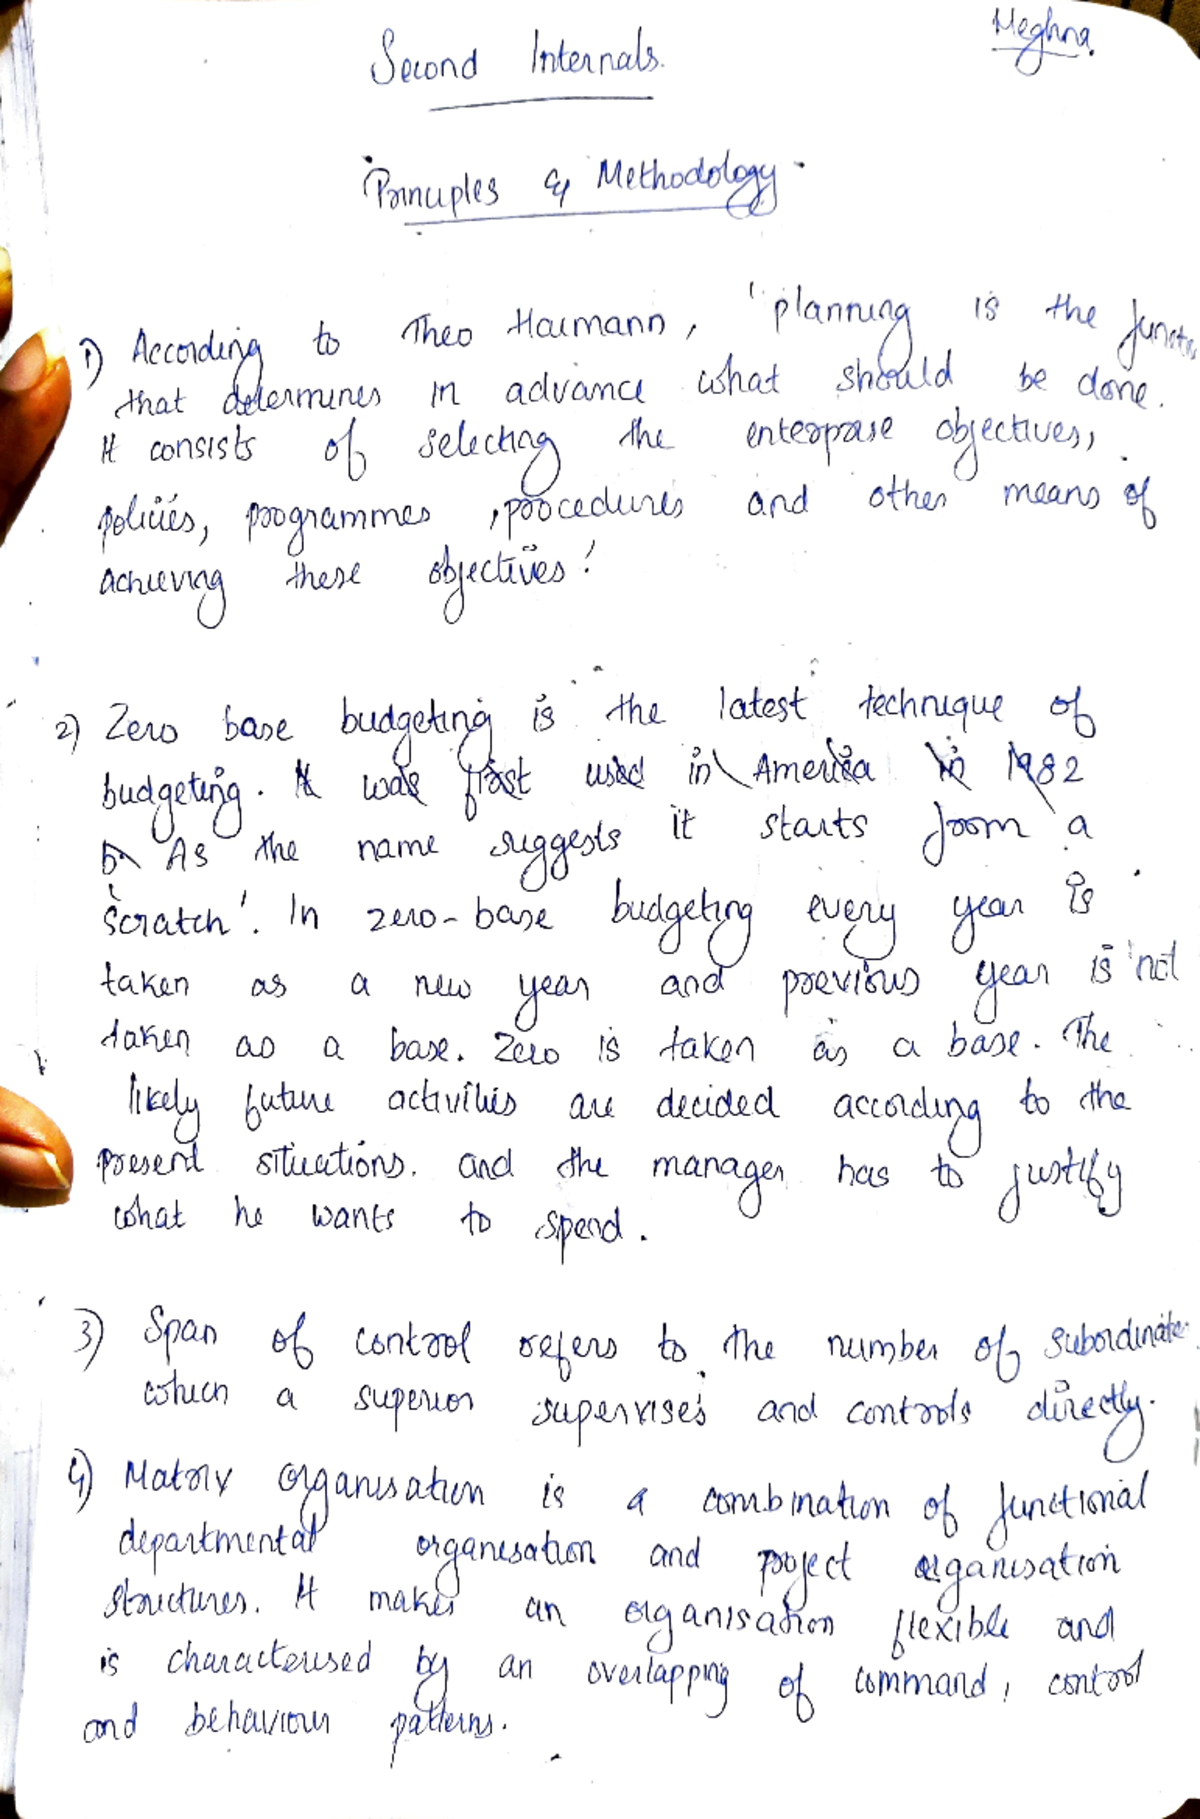 Meghna
Second Internals.
Principles & Methodology
1) According to Theo Haimann, 'planning is the
that determines in advance what should be done.
It consists of selecting the enterprise objectives,
policies, programmes, procedures and other means of
achieving these objectives.'
2) Zero base budgeting is the latest technique of
budgeting. It was first used in America in 1982
As the name suggests it starts from a
'Scratch'. In zero-base budgeting every year is
taken as a new year and previous year is not
taken as a base. Zero is taken as a base. The
likely future activities are decided according to the
present situations. and the manager has to justify
what he wants to spend.
3) Span of control refers to the number of subordinate
which a superior supervises and controls directly.
4) Matrix organisation is a combination of functional
departmental organisation and project organisation
structures. It makes an organisation flexible and
is characterised by an overlapping of command, control
and behaviour patterns.